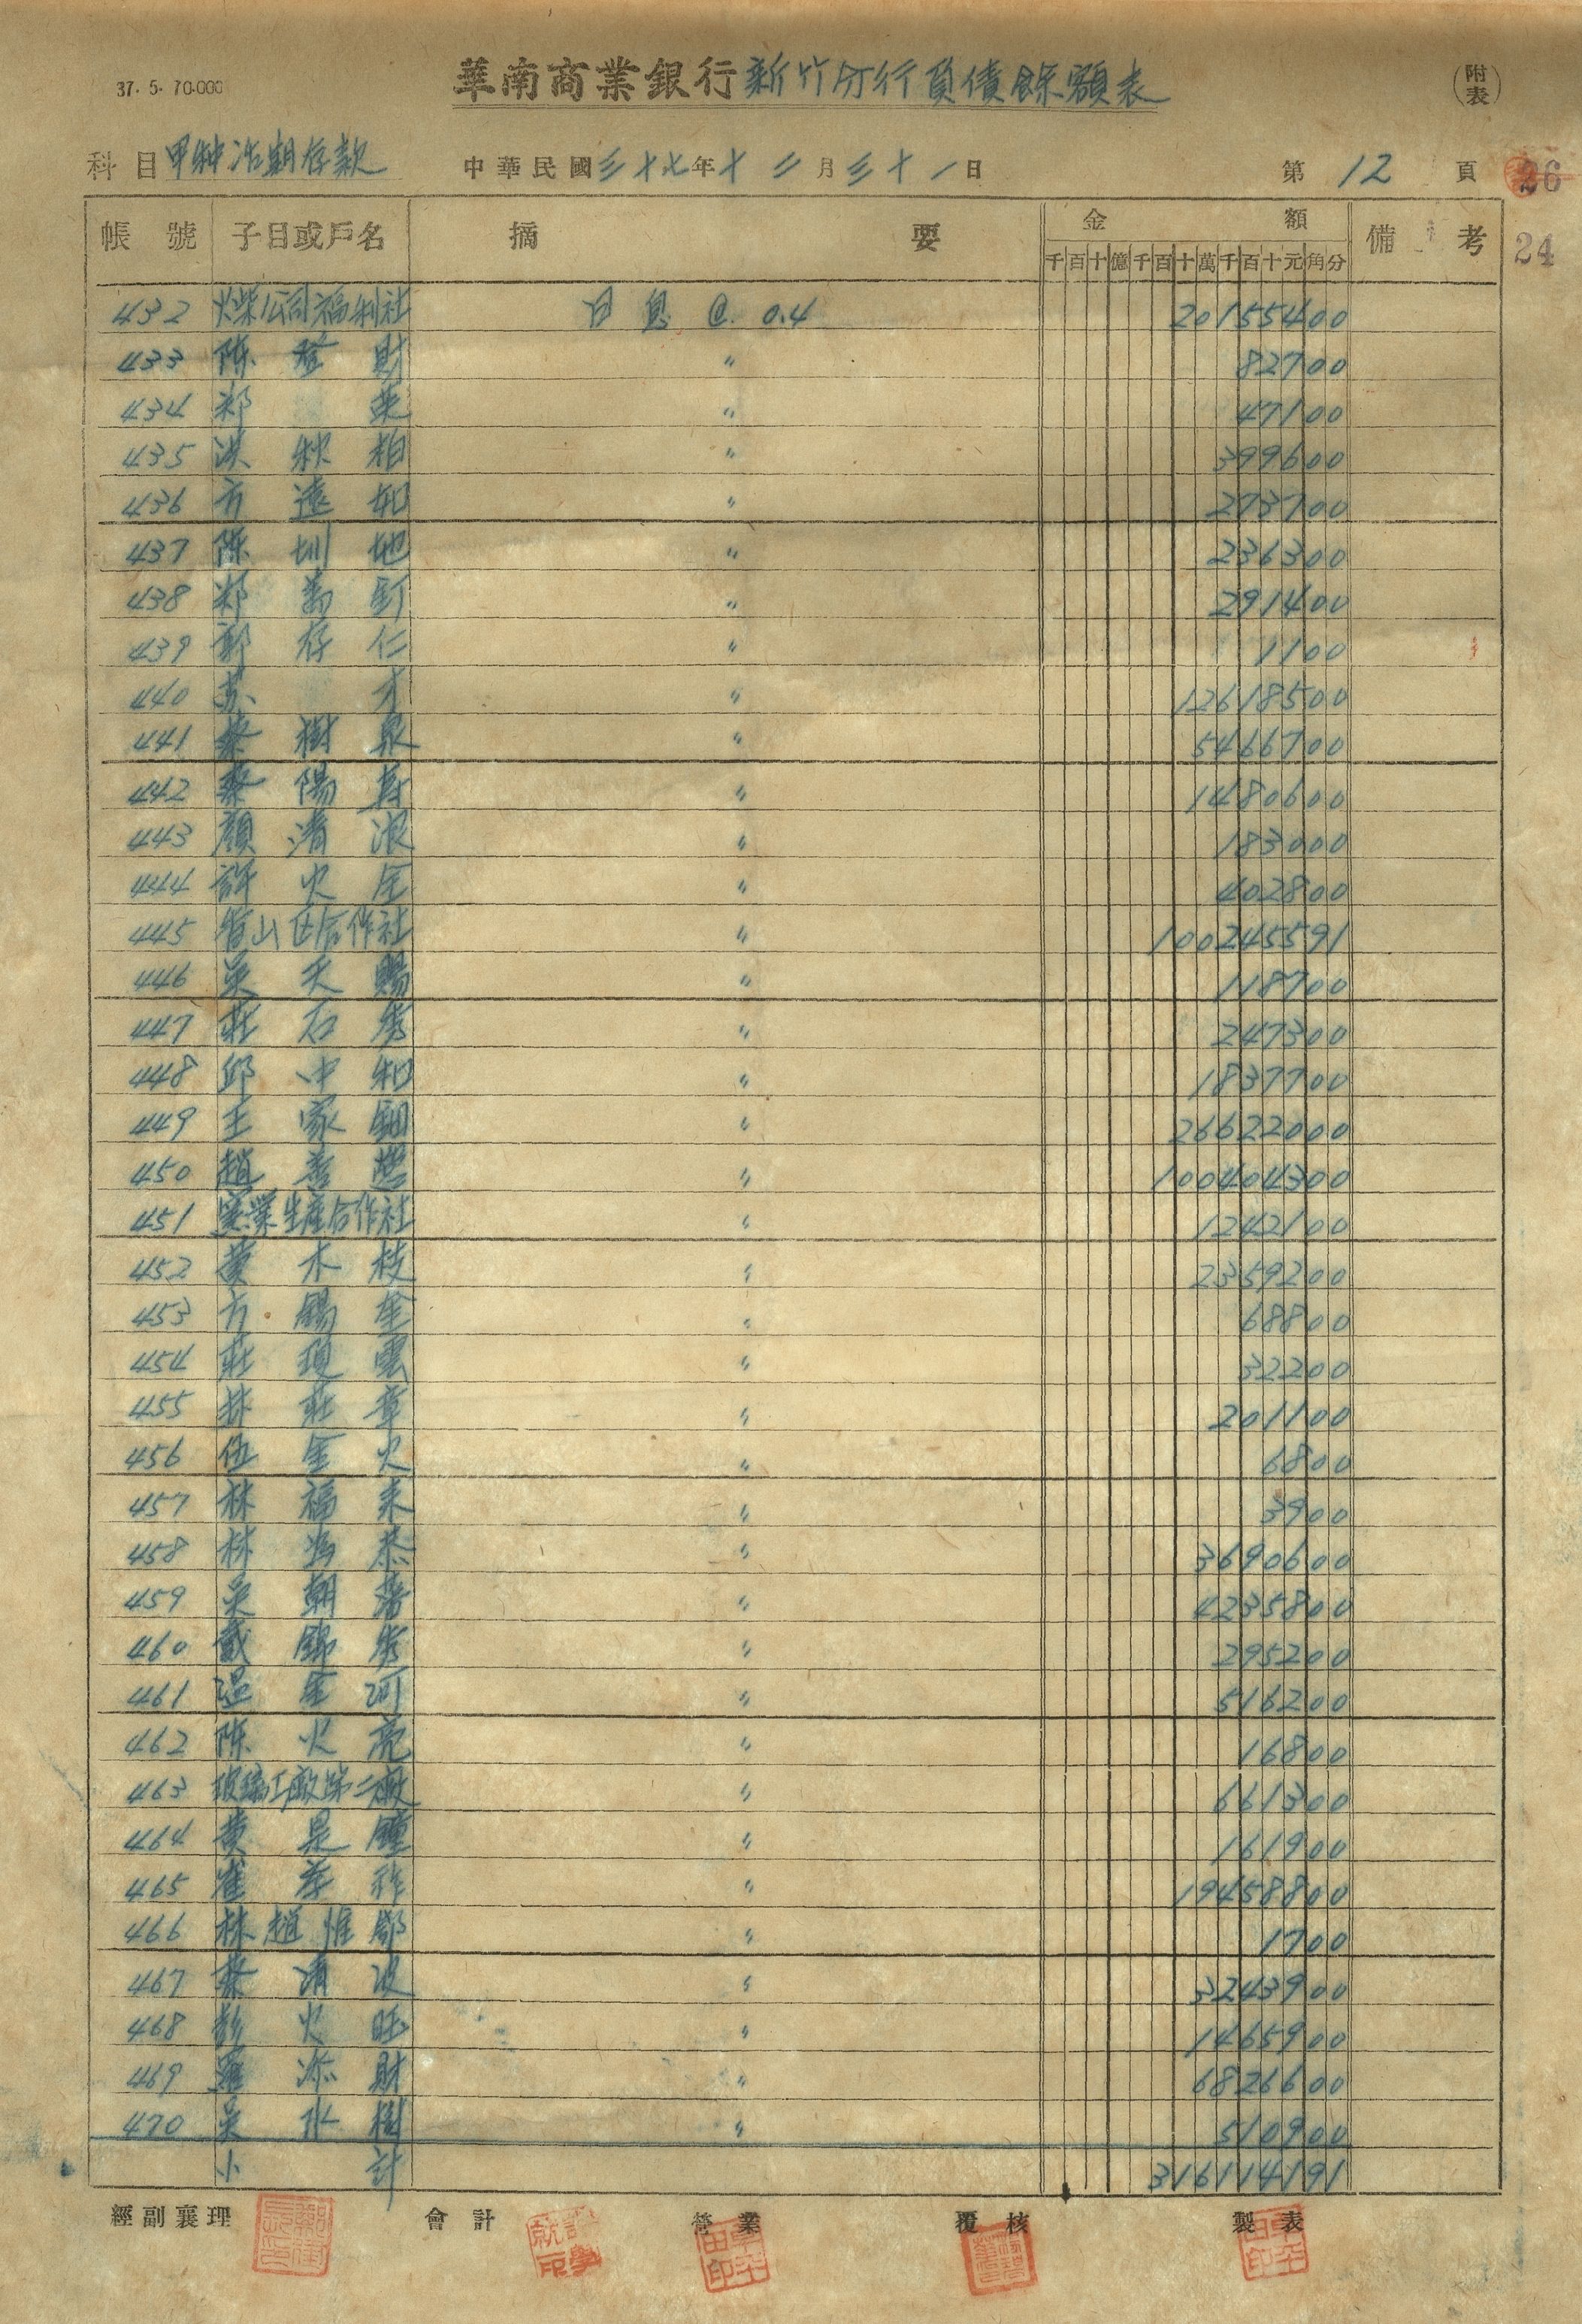 37. 5. 70.000
華南商業銀行新竹分行負債餘額表
(附表)
科目 甲種活期存款 中華民國三十七年十二月三十一日 第12頁 26
帳號 子目或戶名 摘要 金額 備考 24
千百十億千百十萬千百十元角分
432 火柴公司福利社 日息@0.4 20155400
433 陳登財 〃 82700
434 鄭 〃 47100
435 洪秋柏 〃 399600
436 方遠如 〃 273700
437 陳圳地 〃 236300
438 鄭萬釘 〃 291400
439 郭存仁 〃 1100
440 蘇才 〃 12618500
441 蔡樹泉 〃 5466700
442 蔡陽 〃 1480600
443 顏清浪 〃 183000
444 許火金 〃 402800
445 香山區合作社 〃 100245591
446 吳天賜 〃 118700
447 莊石秀 〃 247300
448 邱中和 〃 1837700
449 王家鈿 〃 26622000
450 趙善 〃 100404300
451 窯業生產合作社 〃 1242100
452 黃木枝 〃 2359200
453 方錫金 〃 68800
454 莊雲 〃 32200
455 林莊章 〃 201100
456 伍金火 〃 6800
457 林福來 〃 3900
458 林為恭 〃 3690600
459 吳朝 〃 4235800
460 戴錦秀 〃 295200
461 溫金河 〃 516200
462 陳火亮 〃 16800
463 玻璃工廠第二廠 〃 661300
464 黃是鐘 〃 161900
465 崔孝 〃 19458800
466 林趙惟 〃 1700
467 蔡清波 〃 3243900
468 彭火旺 〃 1465900
469 羅添財 〃 6826600
470 吳水樹 〃 510900
小計 316114191
經副襄理 會計 營業 覆核 製表